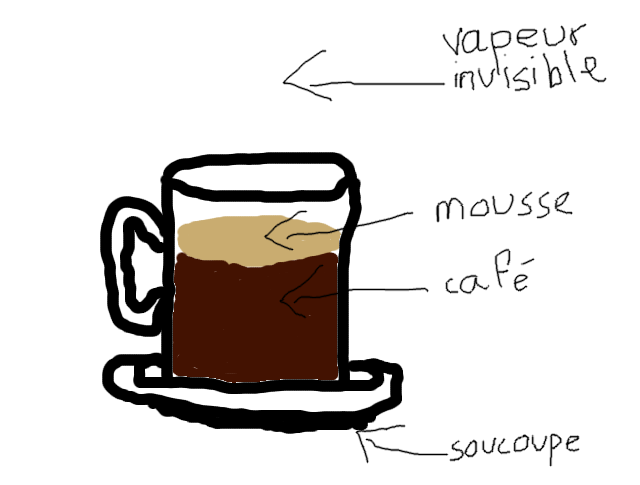 vapeur
invisible
mousse
café
soucoupe